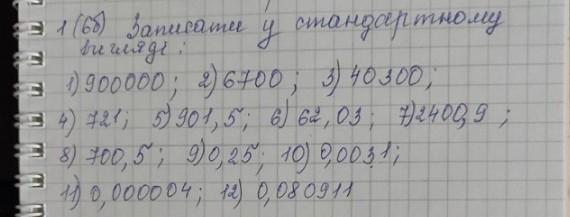 1 (6б) Записати у стандартному
вигляді:
1) 900000; 2) 6700; 3) 40300;
4) 721; 5) 901,5; 6) 62,03; 7) 2400,9;
8) 700,5; 9) 0,25; 10) 0,0031;
11) 0,000004; 12) 0,080911